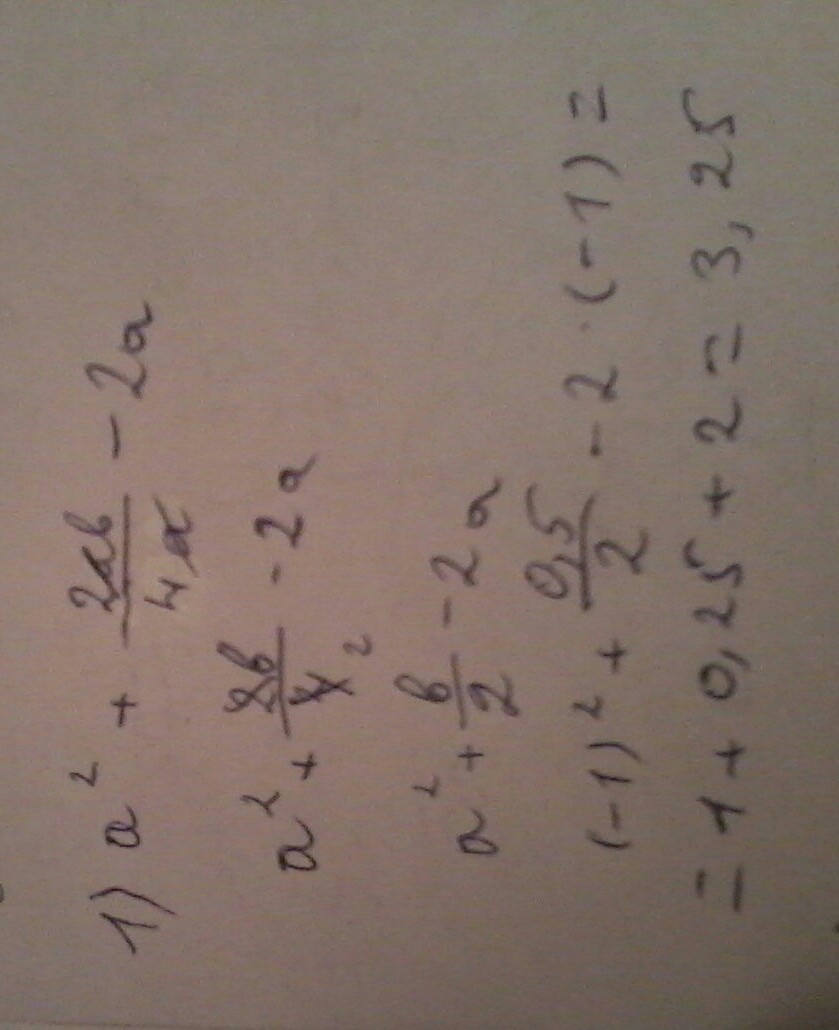 1) a² + 2ab/4a - 2a
a² + 2b/4 2 - 2a
a² + b/2 - 2a
(-1)² + 0,5/2 - 2·(-1) =
= 1 + 0,25 + 2 = 3,25